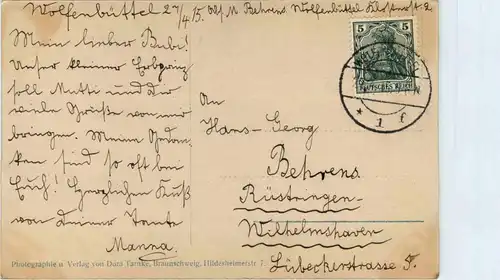 Wolfenbüttel 27/4 15. M Behrens Wolfenbüttel
Mein lieber Bubi!
Unser kleiner Erbprinz
soll Mutti und Dir
viele Grüße von mir
bringen. Meine Gedan-
ken sind so oft bei
Euch! Herzlichen Kuß
von Deiner Tante
Manna.
5 5
DEUTSCHES REICH
* 1 f
An
Hans-Georg
Behrens
Rüstringen-
Wilhelmshaven
Lübeckerstrasse
Photographie u. Verlag von Dora Tarnke, Braunschweig, Hildesheimerstr 7.